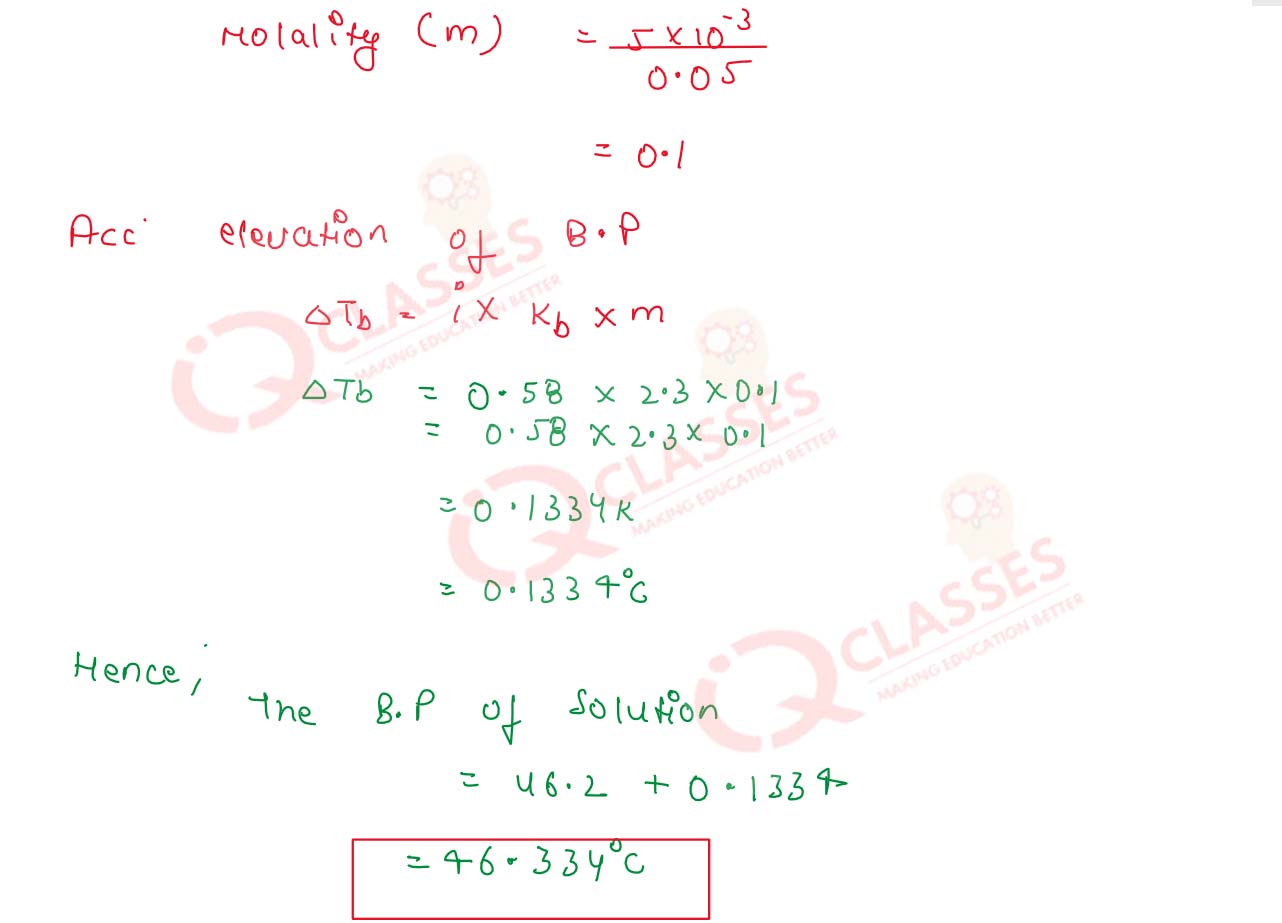 Molality (m) = 5 × 10⁻³ / 0.05
= 0.1
Acc elevation of B.P
ΔTb = i × Kb × m
ΔTb = 0.58 × 2.3 × 0.1
= 0.58 × 2.3 × 0.1
= 0.1334 K
= 0.1334°C
Hence,
the B.P of solution
= 46.2 + 0.1334
= 46.334°C
iQ CLASSES
MAKING EDUCATION BETTER
iQ CLASSES
MAKING EDUCATION BETTER
iQ CLASSES
MAKING EDUCATION BETTER